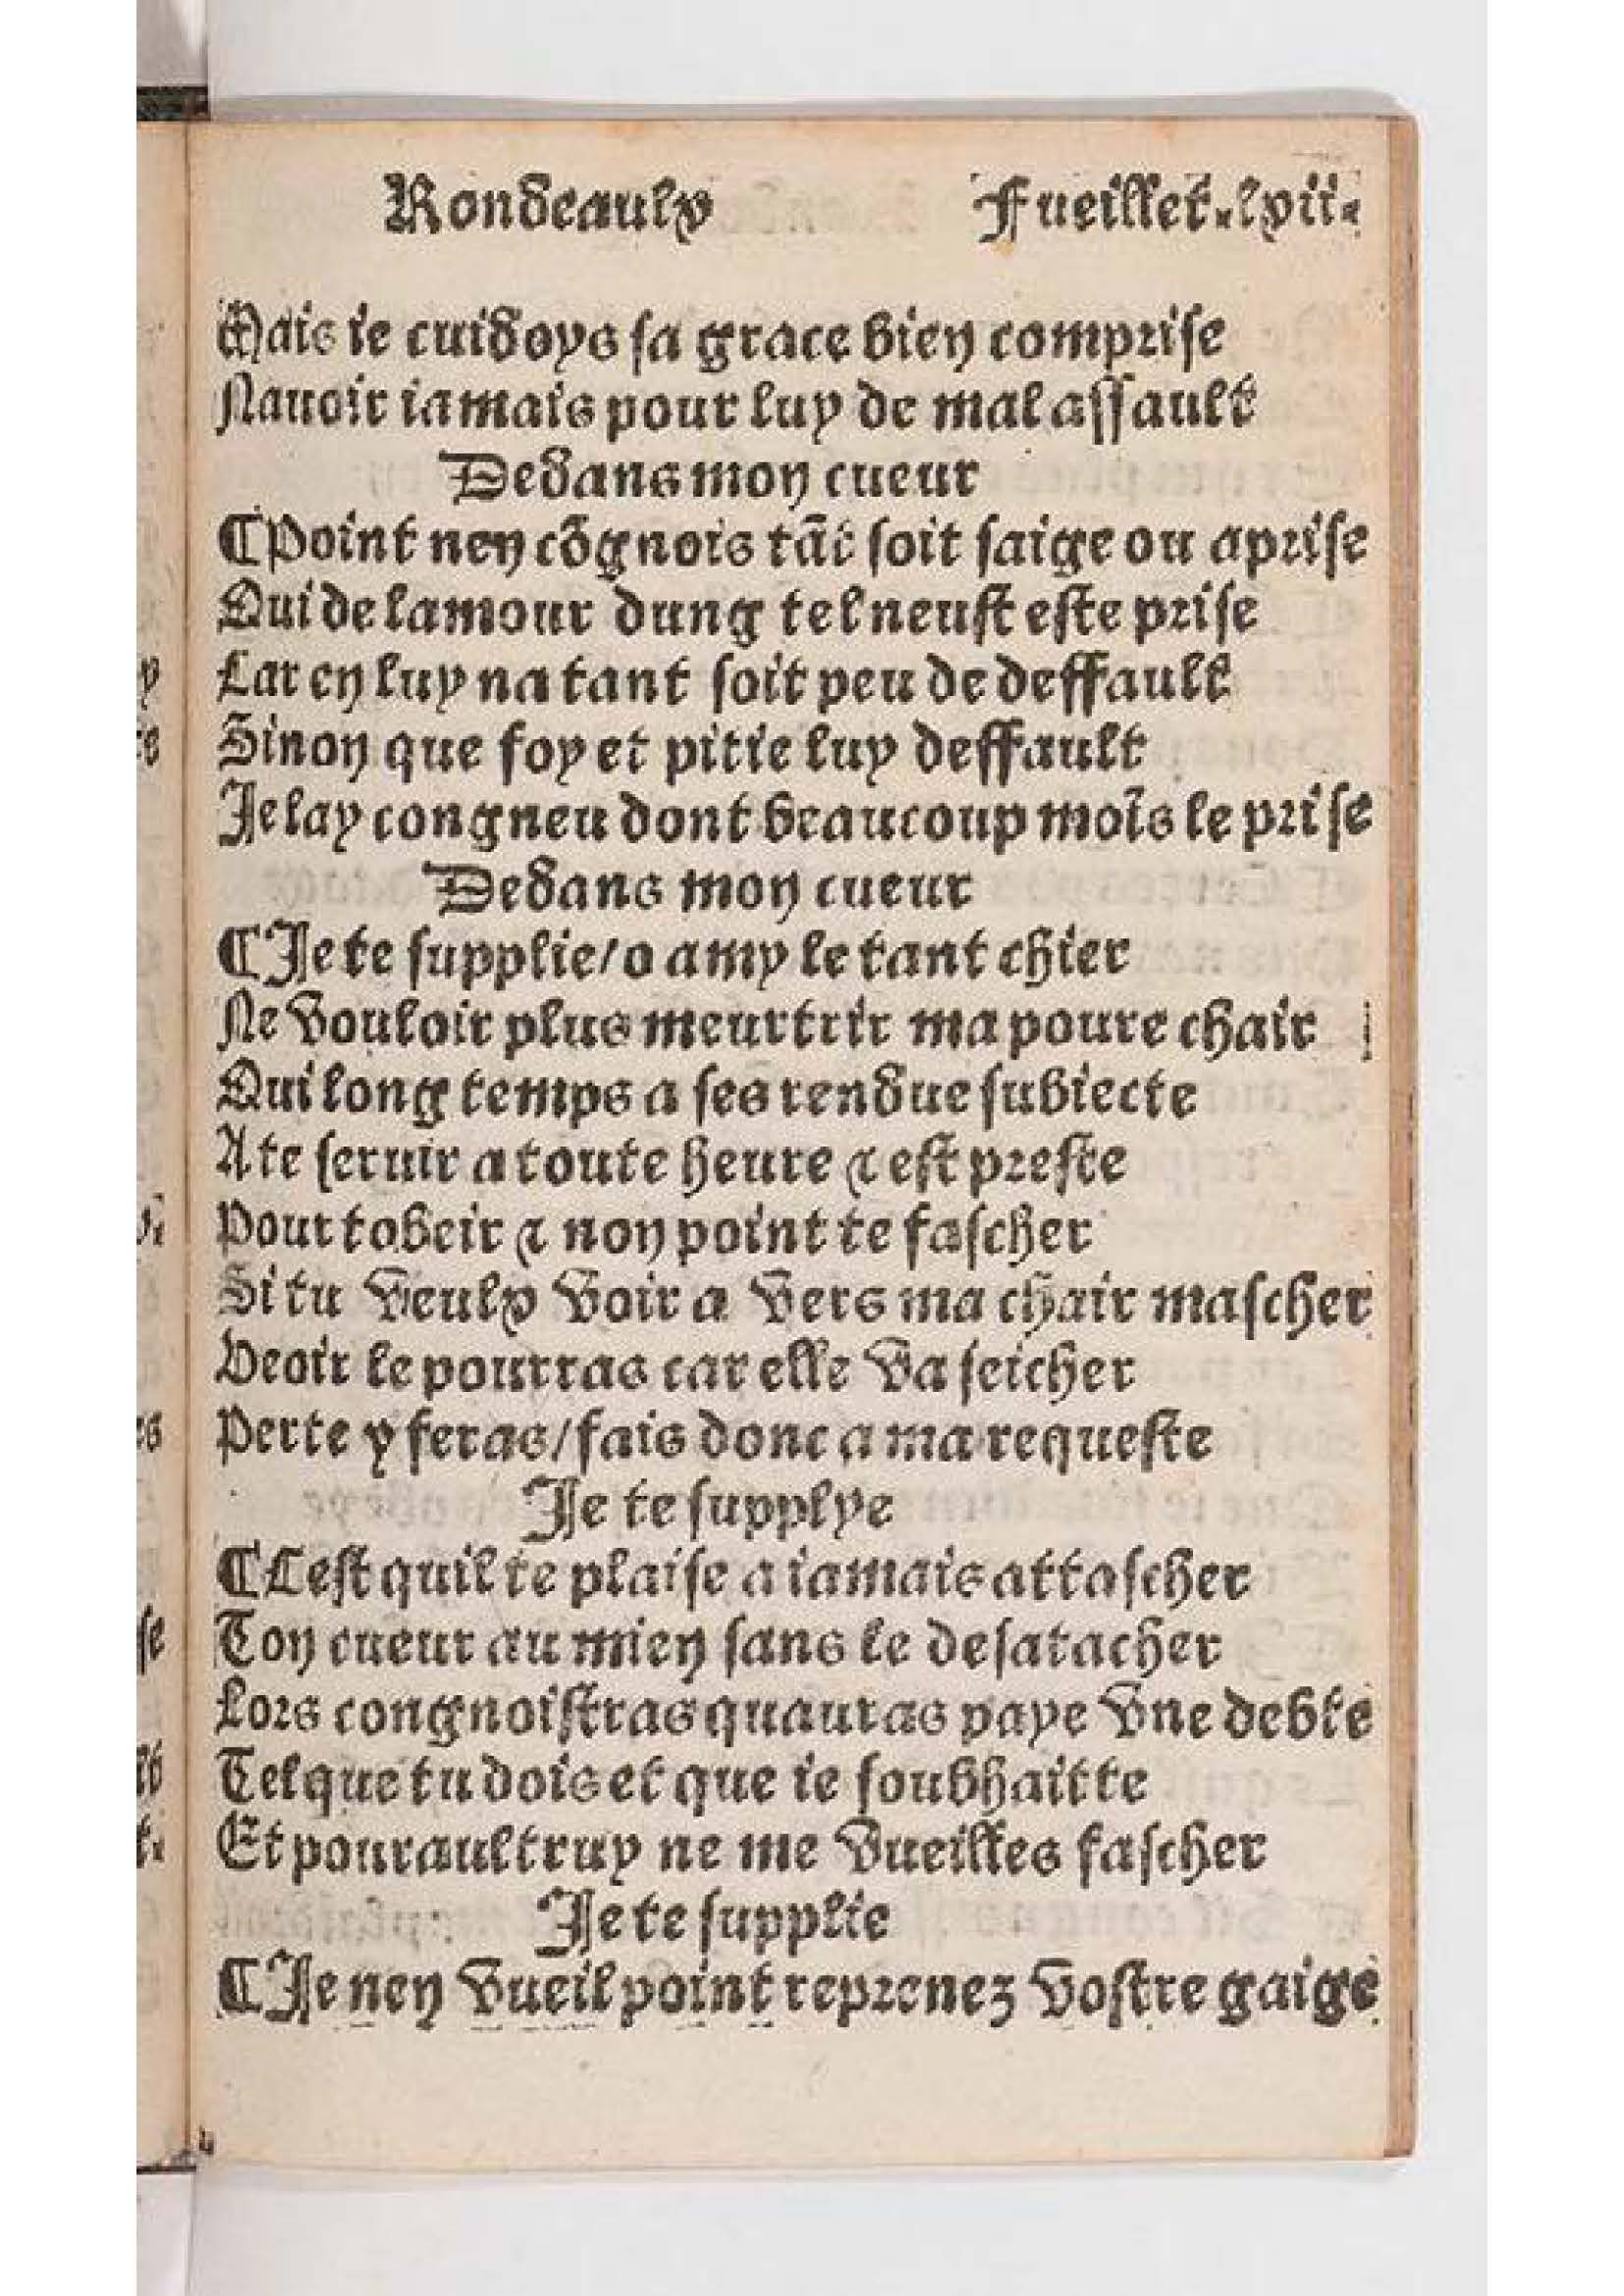 Rondeaulx Fueillet.lvii.
Mais ie cuidoys sa grace bien comprise
Nauoir iamais pour luy de mal assault
Dedans mon cueur
¶Point nen cõgnois tãt soit saige ou aprise
Qui de lamour dung tel neust este prise
Car en luy na tant soit peu de deffault
Sinon que foy et pitie luy deffault
Je lay congneu dont beaucoup moĩs le prise
Dedans mon cueur
¶Je te supplie/o amy le tant chier
Ne vouloir plus meurtrir ma poure chair
Qui long temps a ses rendue subiecte
A te seruir a toute heure & est preste
Pour tobeir & non point te fascher
Si tu veulx voir a vers ma chair mascher
Veoir le pourras car elle va seicher
Perte y feras/fais donc a ma requeste
Je te supplye
¶Cest quil te plaise a iamais attascher
Ton cueur au mien sans le desatacher
Lors congnoistras quauras paye vne debte
Tel que tu dois et que ie soubhaitte
Et pour aultruy ne me vueilles fascher
Je te supplie
¶Je nen vueil point reprenez vostre gaige